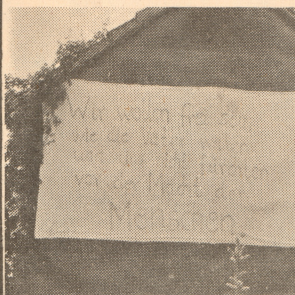 Wir wollen frei sein
wie die Väter waren
und uns nicht fürchten
vor der Macht der
Menschen